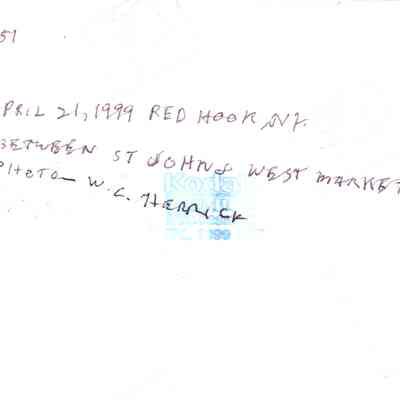 51
PRIL 21, 1999 RED HOOK, N.Y.
BETWEEN ST JOHNS WEST MARKET
PHOTO - W.C. HERRICK
Koda
99